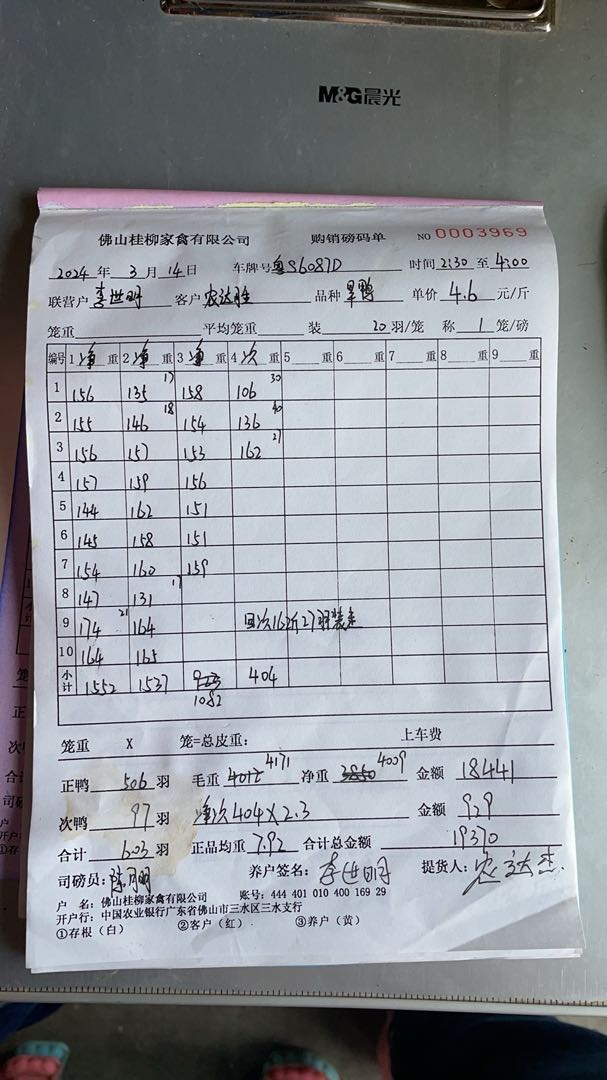 M&G晨光
佛山桂柳家禽有限公司 购销磅码单 NO 0003969
2024 年 3 月 14 日 车牌号 粤S6087D 时间 2:30 至 4:00
联营户 李世明 客户 农达胜 品种 旱鸭 单价 4.6 元/斤
笼重 平均笼重 装 20 羽/笼 称 1 笼/磅
编号 1 净 重 2 净 重 3 净 重 4 次 重 5 重 6 重 7 重 8 重 9 重
1 156 135 17 158 106 30
2 155 146 18 154 136 40
3 156 157 153 162 27
4 157 159 156
5 144 162 151
6 145 158 151
7 154 160 159
8 147 131 17
9 174 21 164 回次162斤27羽装走
10 164 165
小计 1552 1537 404
1082
笼重 X 笼=总皮重: 上车费
正鸭 506 羽 毛重 4171 净重 3850 4009 金额 18441
次鸭 97 羽 净次404X2.3 金额 929
合计 603 羽 正品均重 7.92 合计总金额 19370
司磅员: 养户签名: 李世明 提货人:
户 名: 佛山桂柳家禽有限公司 账号: 444 401 010 400 169 29
开户行: 中国农业银行广东省佛山市三水区三水支行
①存根（白） ②客户（红） ③养户（黄）